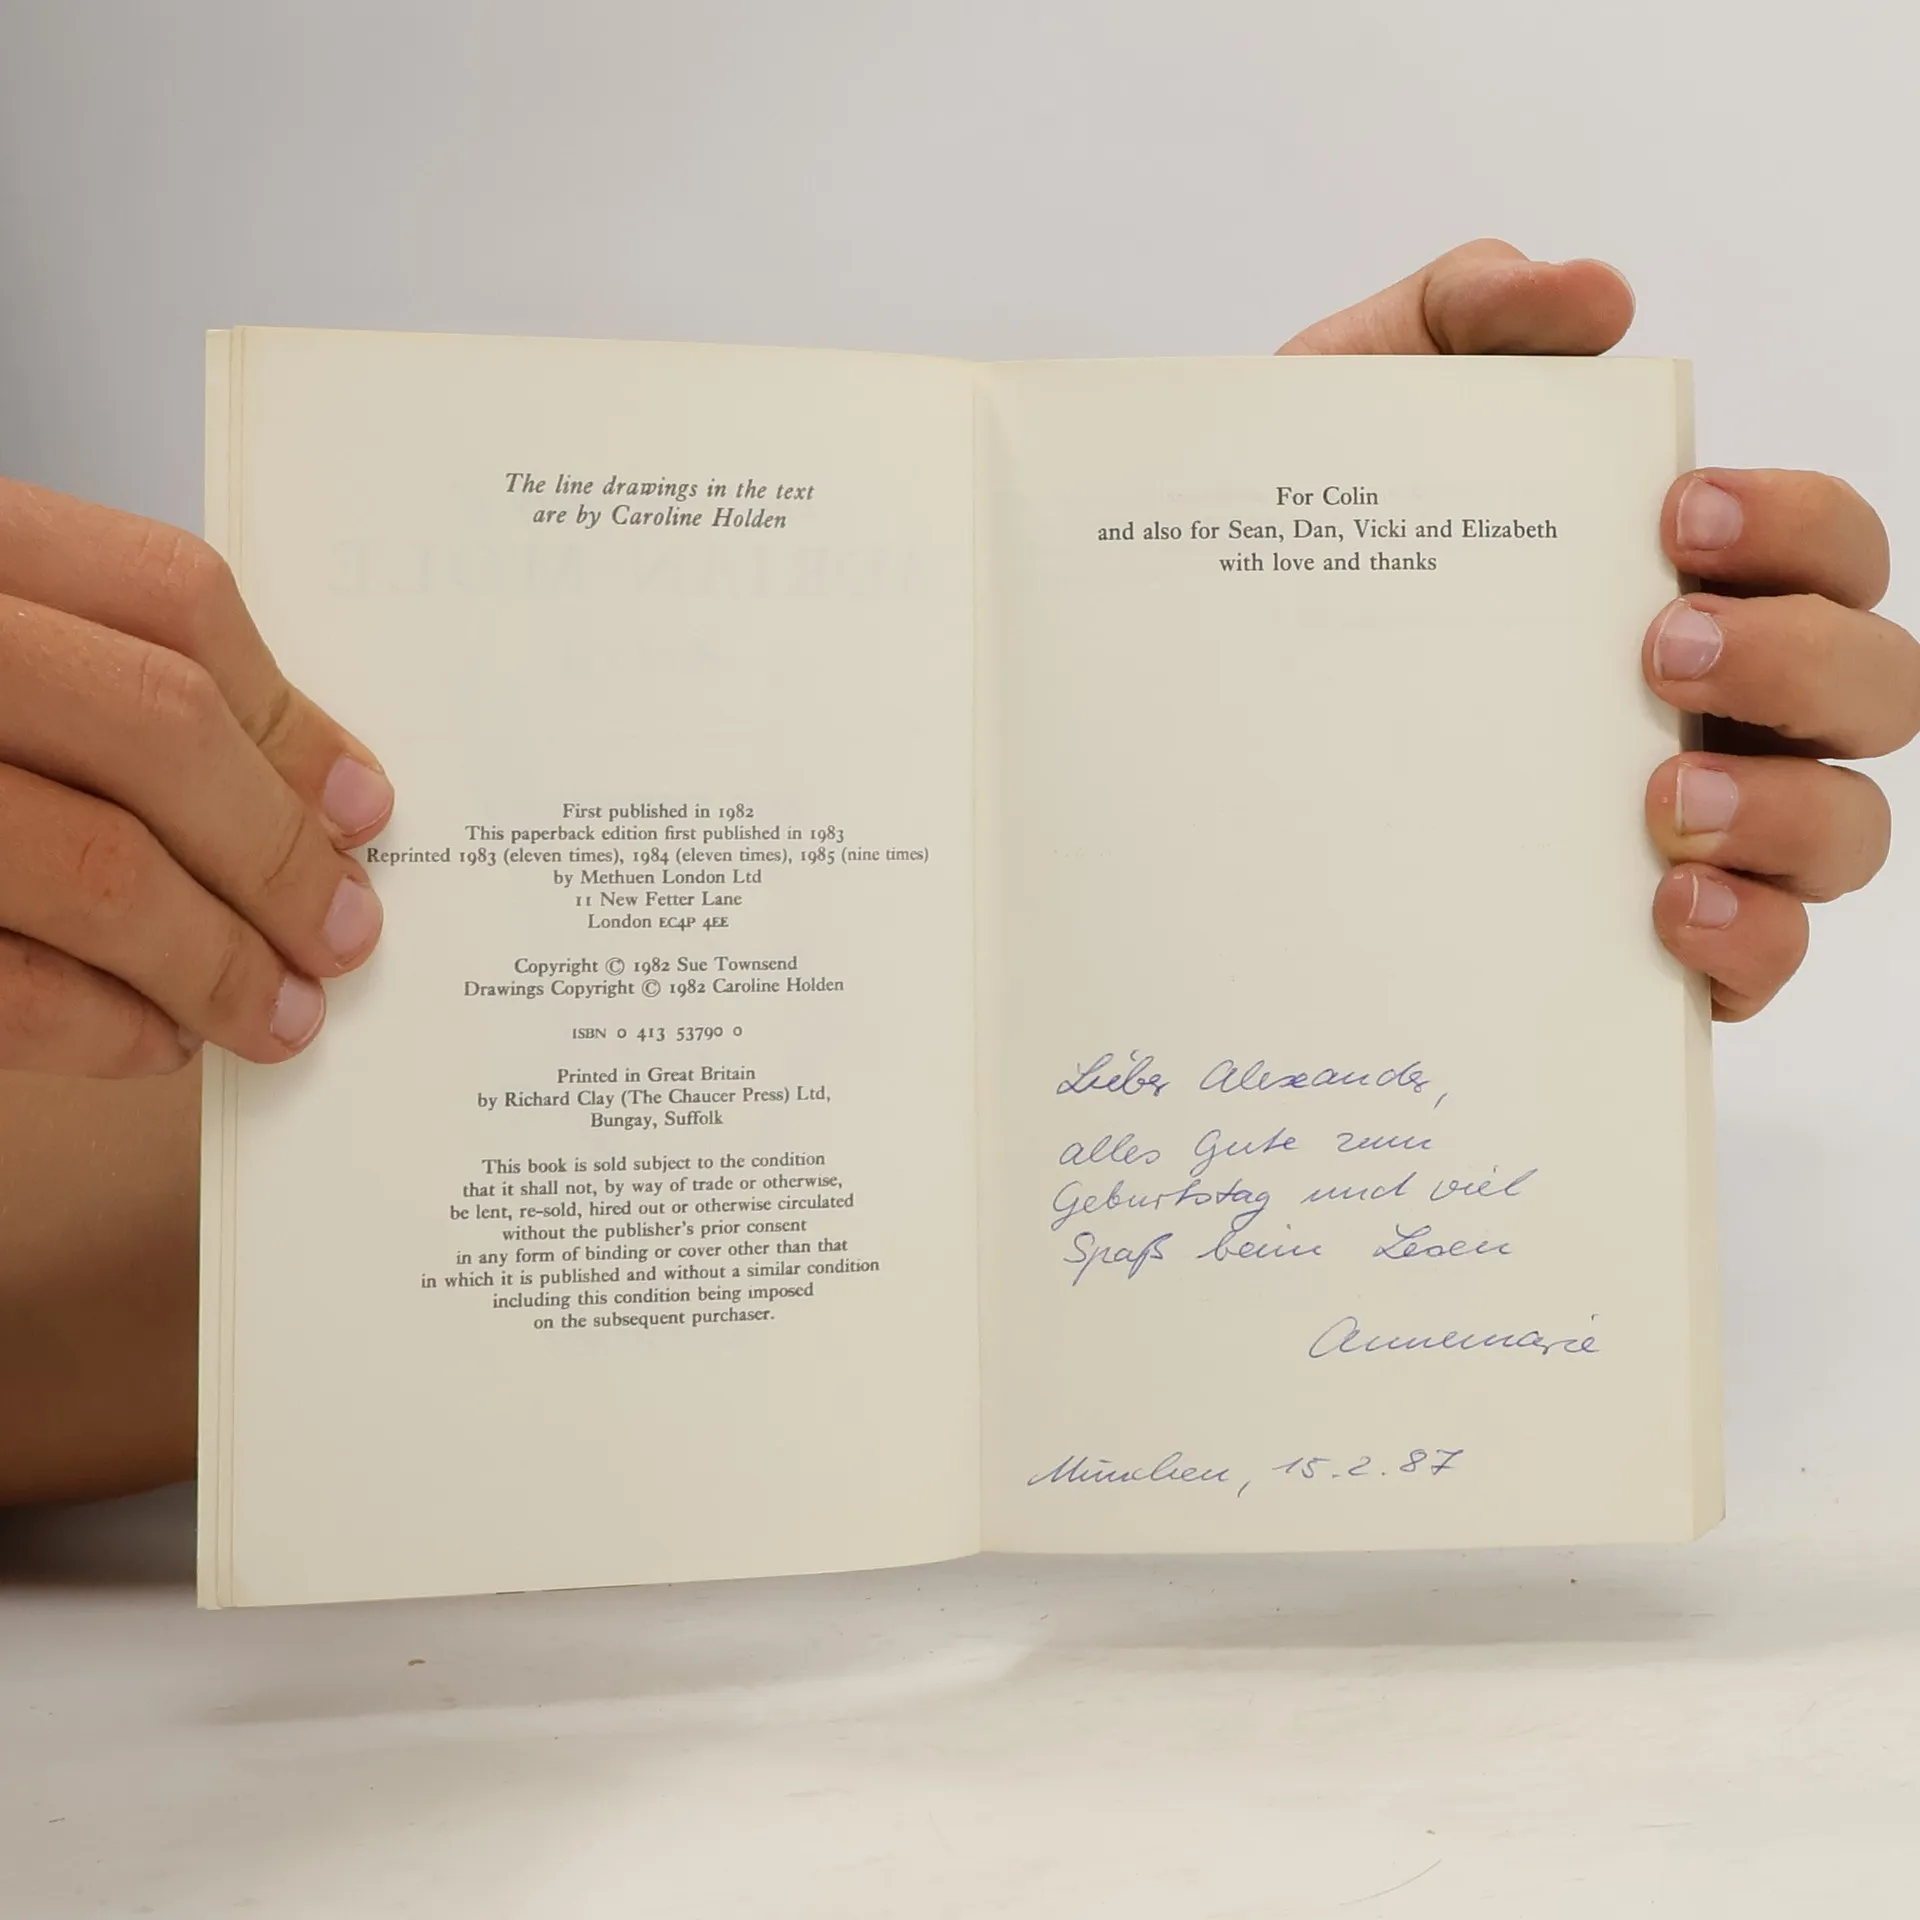 The line drawings in the text
are by Caroline Holden
First published in 1982
This paperback edition first published in 1983
Reprinted 1983 (eleven times), 1984 (eleven times), 1985 (nine times)
by Methuen London Ltd
11 New Fetter Lane
London EC4P 4EE
Copyright © 1982 Sue Townsend
Drawings Copyright © 1982 Caroline Holden
ISBN 0 413 53790 0
Printed in Great Britain
by Richard Clay (The Chaucer Press) Ltd,
Bungay, Suffolk
This book is sold subject to the condition
that it shall not, by way of trade or otherwise,
be lent, re-sold, hired out or otherwise circulated
without the publisher's prior consent
in any form of binding or cover other than that
in which it is published and without a similar condition
including this condition being imposed
on the subsequent purchaser.
For Colin
and also for Sean, Dan, Vicki and Elizabeth
with love and thanks
Lieber Alexander,
alles Gute zum
Geburtstag und viel
Spaß beim Lesen
Annemarie
München, 15.2.87